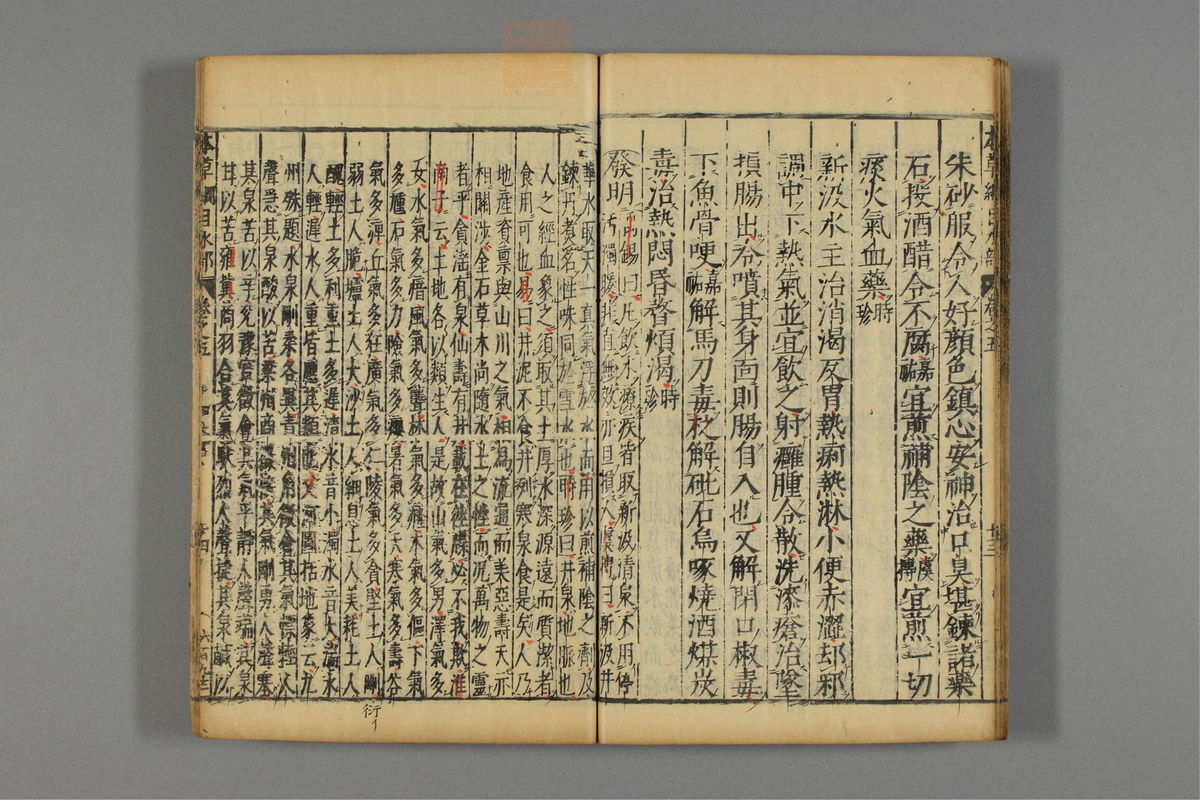 本草綱目水部 卷之五 廿三
朱砂服令人好顏色鎮心安神治口臭堪鍊諸藥
石投酒醋令不腐嘉祐宜煎補陰之藥虞摶宜煎一切
痰火氣血藥時珍
新汲水主治消渴反胃熱痢熱淋小便赤澀却邪
調中下熱氣並宜飲之射癰腫令散洗漆瘡治墜
損腸出冷噴其身面則腸自入也又解閉口椒毒
下魚骨哽嘉祐解馬刀毒之才解砒石烏喙燒酒煤炭
毒治熱悶昏瞀煩渴時珍
發明禹錫曰凡飲水療疾皆取新汲清泉不用停
污濁暖非直無效亦且損人虞摶曰新汲井
華水取天一真氣浮於水面用以煎補陰之劑及
鍊丹煮茗性味同於雪水也時珍曰井泉地脈也
人之經血象之須取其土厚水深源遠而質潔者
食用可也易曰井泥不食井冽寒泉食是矣人乃
地產資稟與山川之氣相為流通而美惡壽夭亦
相關涉金石草木尚隨水土之性而況萬物之靈
者乎貪淫有泉仙壽有井載在往牒必不我欺淮
南子云土地各以類生人是故山氣多男澤氣多
女水氣多瘖風氣多聾林氣多癃木氣多傴下氣
多尰石氣多力險氣多癭暑氣多夭寒氣多壽谷
氣多痺丘氣多狂廣氣多仁陵氣多貪堅土人剛
弱土人脆壚土人大沙土人細息土人美耗土人
醜輕土多利重土多遲清水音小濁水音大湍水
人輕遲水人重皆應其類也又河圖括地象云九
州殊題水泉剛柔各異青州角徵會其氣慓輕人
聲急其泉酸以苦梁州商徵接其氣剛勇人聲塞
其泉苦以辛兗豫宮徵會其氣平靜人聲端其泉
甘以苦雍冀商羽合其氣駛烈人聲捷其泉鹹以
本草綱目水部 卷之五
衍